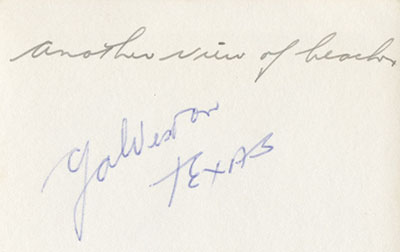 another view of beach.
Galveston
TEXAS